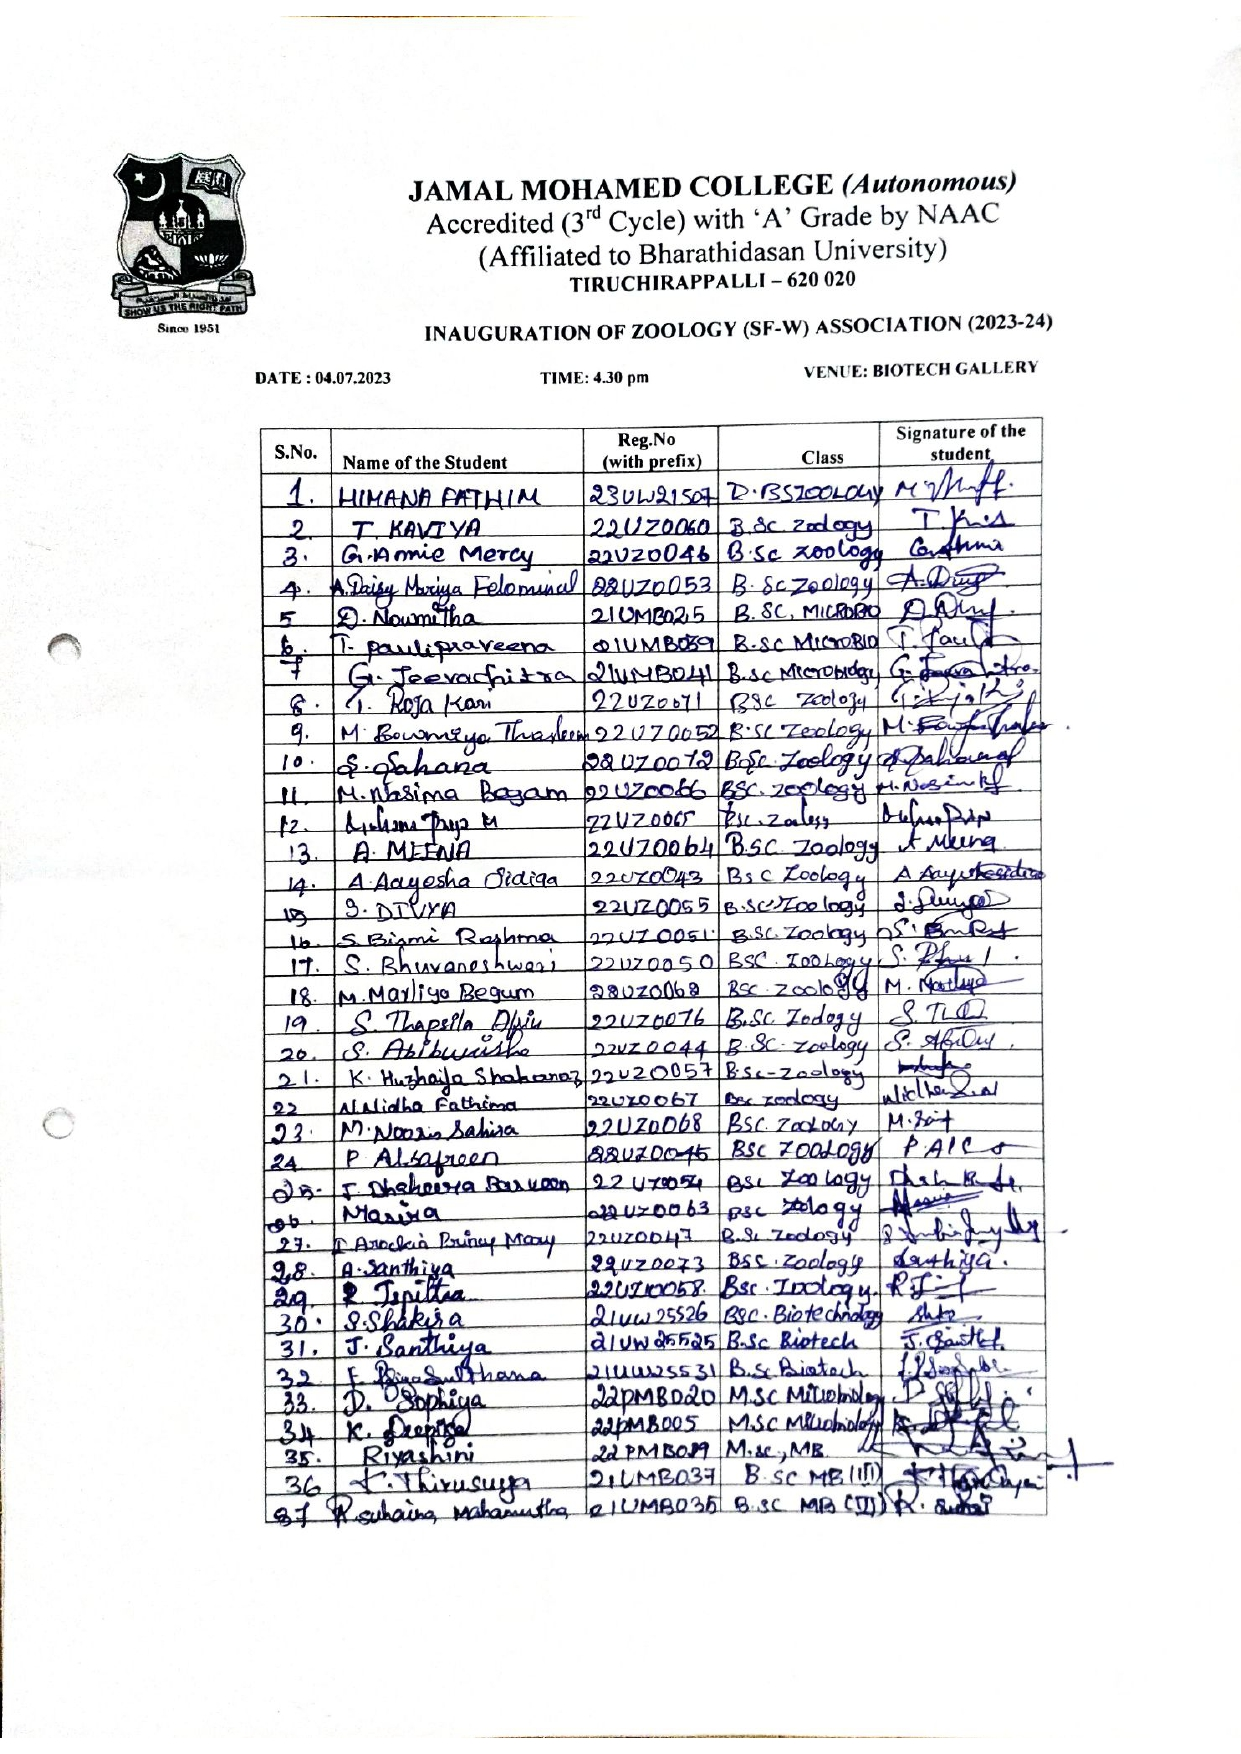 JAMAL MOHAMED COLLEGE (Autonomous)
Accredited (3rd Cycle) with ‘A’ Grade by NAAC
(Affiliated to Bharathidasan University)
TIRUCHIRAPPALLI – 620 020
SHOW US THE RIGHT PATH
Since 1951
INAUGURATION OF ZOOLOGY (SF-W) ASSOCIATION (2023-24)
DATE : 04.07.2023 TIME: 4.30 pm VENUE: BIOTECH GALLERY
S.No. Name of the Student Reg.No (with prefix) Class Signature of the student
1. HIMANA FATHIM 23UW21507
2. T. KAVIYA 22UZ0060 B.Sc Zoology
3. G. Amie Mercy 22UZ0046 B.Sc Zoology
4. A.Daisy Mariya Felominal 22UZ0053 B.Sc Zoology
5 D. Nowmitha 21UMB025 B.SC. MICROBIO
6. T. paulipraveena 21UMB039 B.SC MICROBIO
7 G. Jeevachitra 21UMB041 B.Sc Microbiology
8. T. Roja Kani 22UZ0071 BSC Zoology
9. M. Bowmiya Thasleem 22UZ0052 B.Sc Zoology
10. S. Sahana 22UZ0072 B.Sc. Zoology
11. M. Nasima Begam 22UZ0066 BSC. Zoology
12. M 22UZ0065
13. A. MEENA 22UZ0064 B.SC. Zoology A Meena
14. A. Aayesha Sidiqa 22UZ0043 BSC Zoology
15 S. DIVYA 22UZ0055 B.SC Zoology
16. S. Bismi Reshma 22UZ0051 B.SC. Zoology
17. S. Bhuvaneshwari 22UZ0050 BSC. ZOOLOGY
18. M. Marliya Begum 22UZ0062 BSC. Zoology
19. S. Thapsila 22UZ0076 B.Sc. Zoology
20. S. Abibunisha 22UZ0044 B.SC. Zoology
21. K. Huzhaifa Shahanaz 22UZ0057 B.Sc-Zoology
22 Nidha Fathima 22UZ0067 Bsc zoology
23. M. Sahira 22UZ0068 BSC. ZOOLOGY
24 P Alsafreen 22UZ0045 BSC ZOOLOGY
25. J. Dhaheera Parveen 22UZ0054 BSC Zoology
26. Masira 22UZ0063 BSC Zoology
27. Arockia Princy Mary 22UZ0047 B.Sc Zoology
28. A. Santhiya 22UZ0073 BSC. Zoology Santhiya.
29. 22UZ0058. BSC. Zoology.
30. S. Shakira 21UW25526 BSC. Biotechnology
31. J. Santhiya 21UW25525 B.Sc Biotech
32. 21UW25531 B.Sc Biotech
33. D. Sophiya 22PMB020 M.SC Microbiology
34 K. Deepika 22PMB005 M.SC Microbiology
35. Riyashini M.sc, MB
36 K. Thirusurya 21UMB037 B.SC MB (III)
37 R. suhaina Mahamutha 21UMB035 B.SC MB (III)